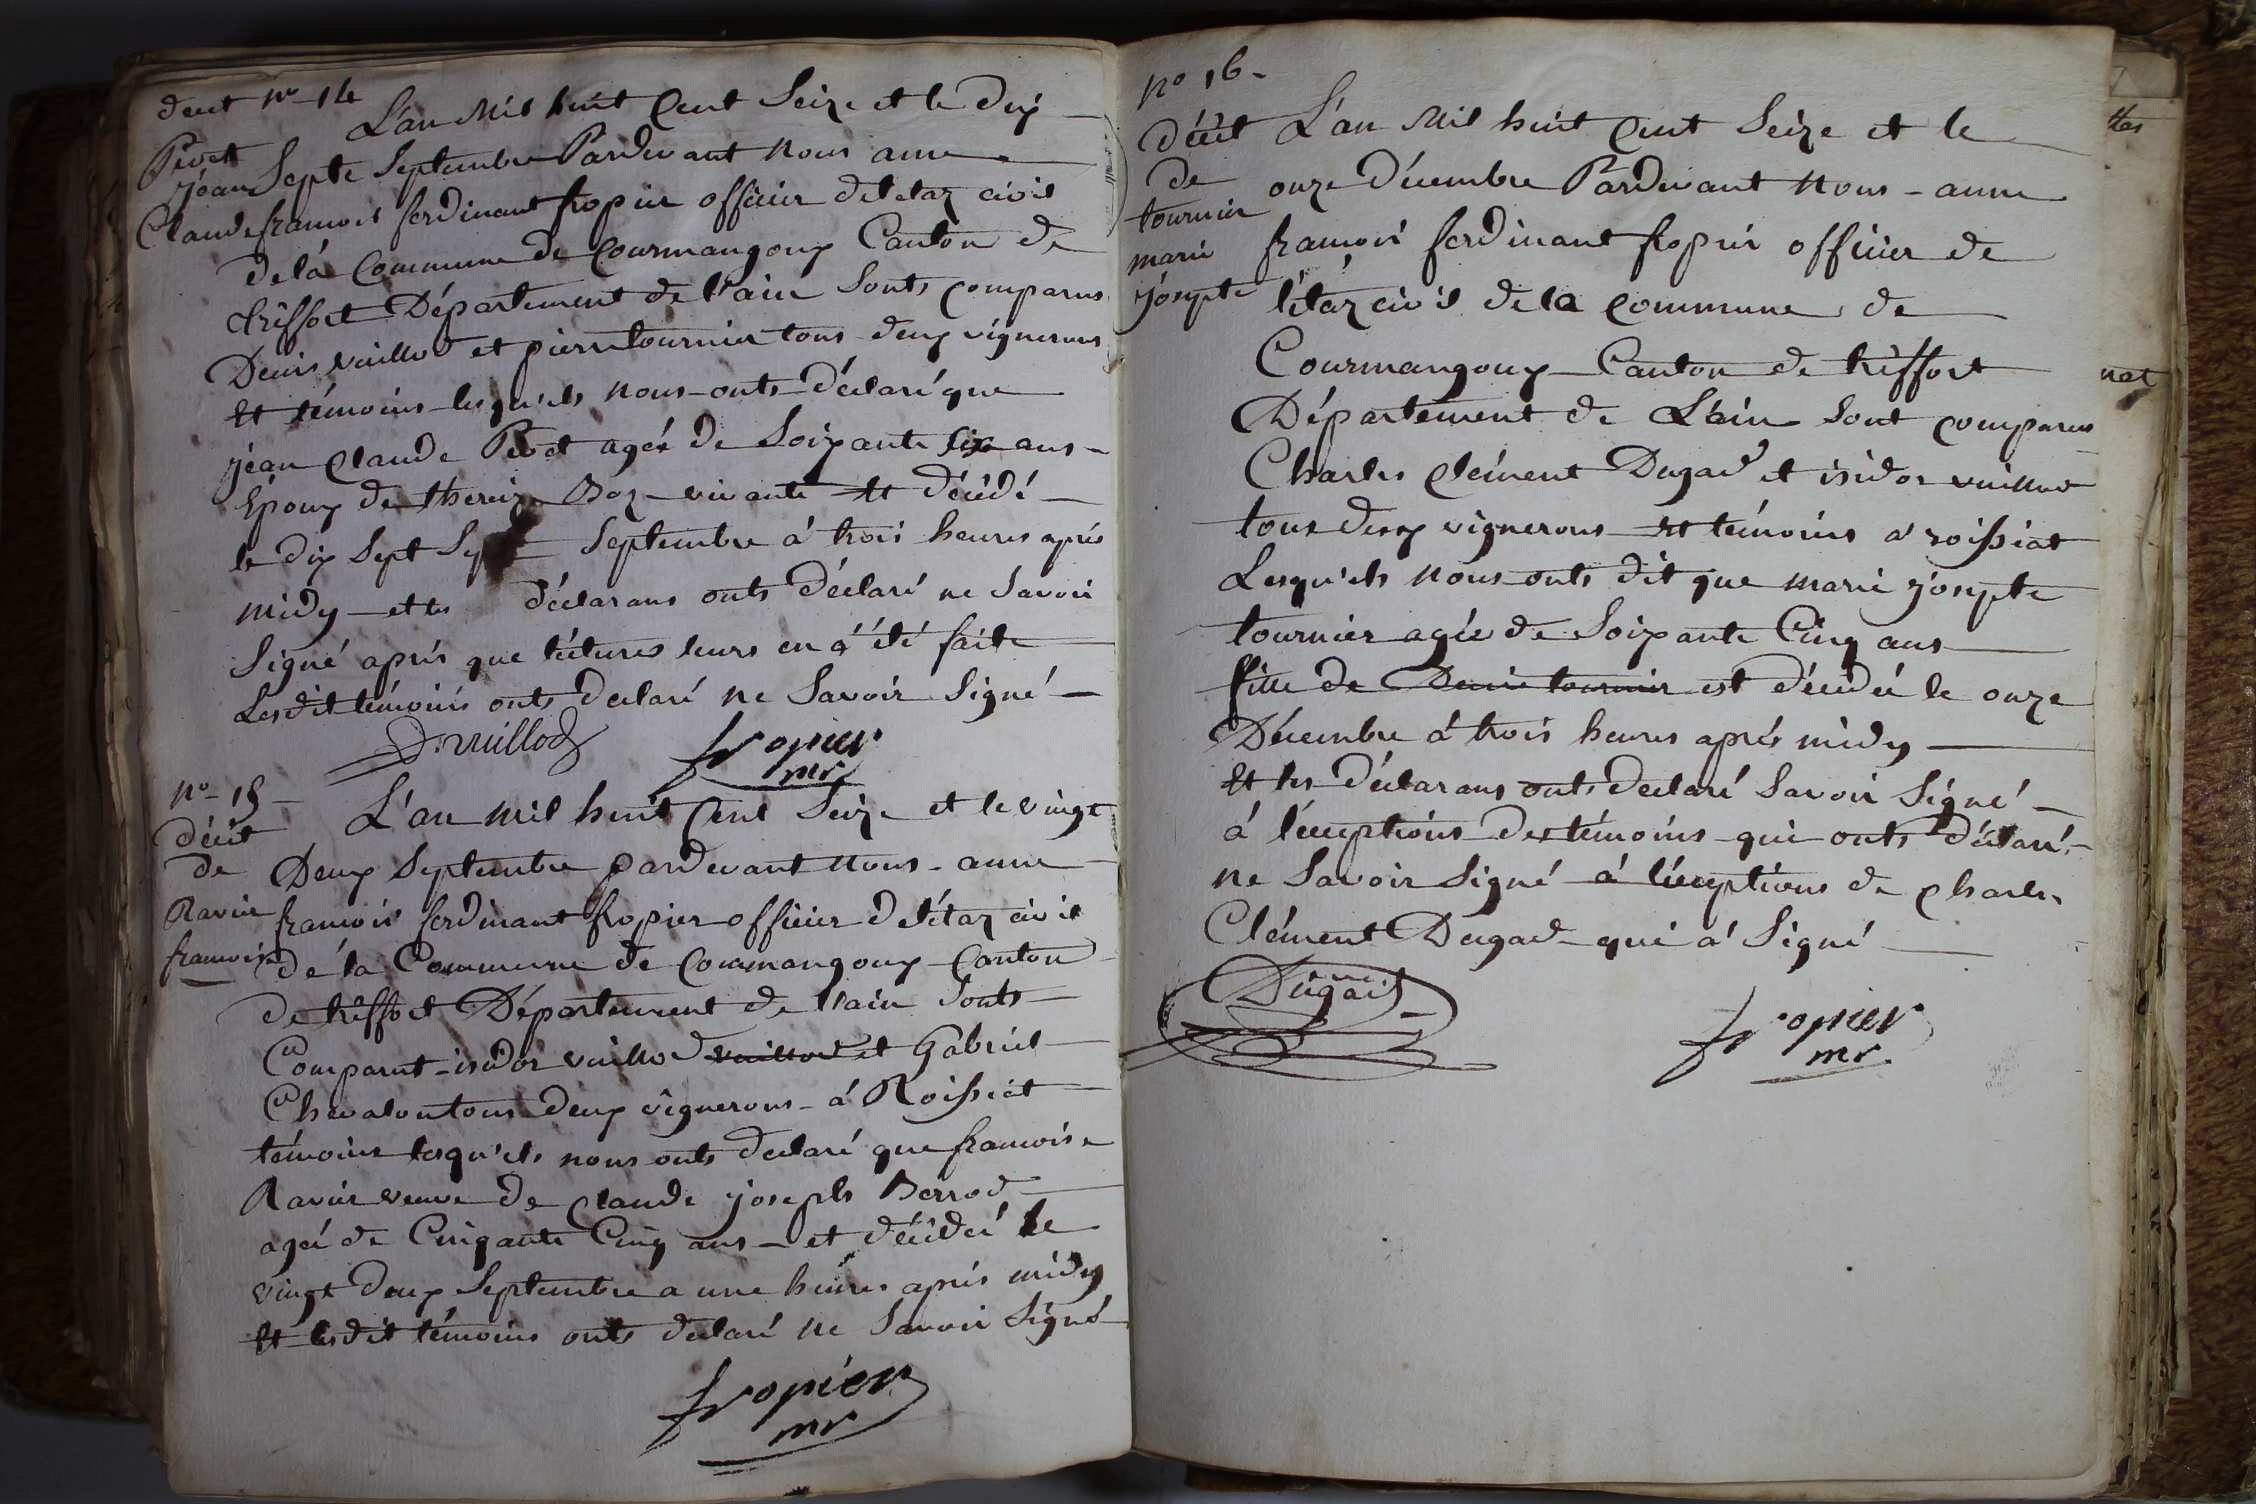 decet no 14
Pevet
jean
Claude
L'an Mil huit Cent Seize et le dix
Septe Septembre Pardevant Nous anne
francois ferdinant fropier officier deletaz civil
de la Commune de Courmangoux Canton de
treffort Département de l'ain Sonts comparus
Denis vuillod et pierre tournier tous deux vignerons
Et témoins lesqu'els Nous onts déclaré que
jean Claude Pevet agée de Soixante Six ans
Epoux de thereize Boz vivante Et Décédé
le dix Sept Sept Septembre á trois heures aprés
midy et les déclarans onts Déclaré ne Savoir
Signé aprés que léctures leurs en á été faite
Lesdit témoins onts declaré ne Savoir Signé
D. vuillod
fropier
mr
no 15
décét
de
Ravier
francoise
L'an mil huit Cent Seize et le vingt
Deux Septembre pardevant Nous anne
francois ferdinant fropier officier delétaz civil
dé la Commune de Courmangoux Canton
de treffort Département de l'ain Sonts
Comparut isidor vuillod vuillod et Gabriel
Chevalon tous deux vignerons á Roissiat
témoins lesqu'els nous onts declaré que francoise
Ravier veuve de Claude joseph Berrod
ageé de Cinqante Cinq ans et décédeé le
vingt deux Septembre a une heures aprés midy
Et lesdit témoins onts declaré ne Savoir Signé
fropier
mr
no 16
Décét
de
tournier
marie
josepte
L'an Mil huit Cent Seize et le
onze Décembre Pardevant Nous anne
francois ferdinant fropier officier de
létaz civil de la commune de
Courmangoux Canton de treffort
Département de L'ain Sont comparus
Charles Clément Dugad et isidor vuillod
tous deux vignerons et témoins á roissiat
Lesqu'els Nous onts dit que marie josepte
tournier ageé de Soixante Cinq ans
fille de Denis tournier est décédeé le onze
Décembre á trois heures aprés midy
Et les déclarans onts declaré Savoir Signé
á léxceptions des témoins qui onts déclaré
ne Savoir Signé á léxceptions de Charles
Clément Dugad qui á Signé
Dugad
fropier
mr